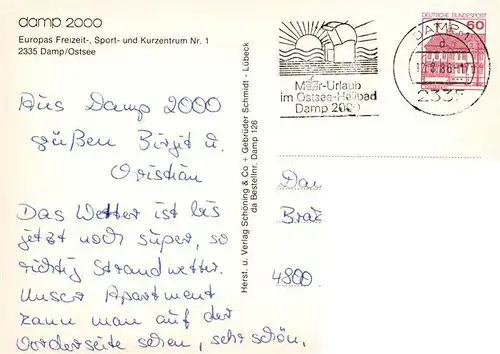 damp 2000
Europas Freizeit-, Sport- und Kurzentrum Nr. 1
2335 Damp/Ostsee
Aus Damp 2000
grüßen Birgit u.
Christian
Das Wetter ist bis
jetzt noch super, so
richtig Strandwetter.
Unser Apartment
kann man auf der
Vorderseite sehen, sehr schön,
Herst. u. Verlag Schöning & Co + Gebrüder Schmidt - Lübeck
da Bestellnr. Damp 126
Meer-Urlaub
im Ostsee-Heilbad
Damp 2000
DEUTSCHE BUNDESPOST
60
DAMP 1
2335
4800